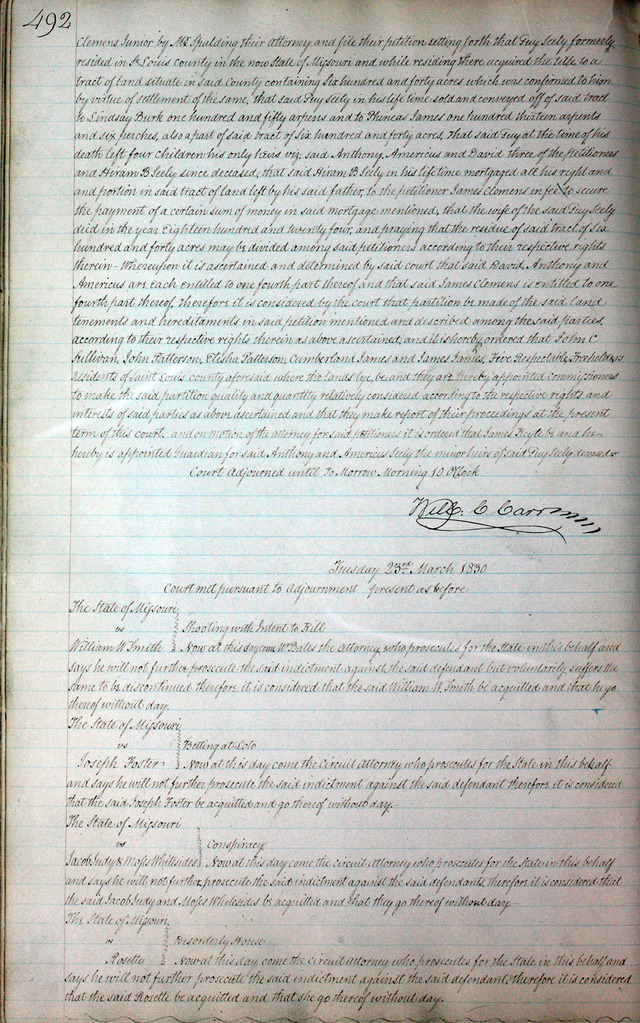 492
Clemens Junior by Mr. Spalding their Attorney and file their petition setting forth that Guy Seely formerly
resided in St. Louis county in the now State of Missouri and while residing there acquired the title to a
tract of land situate in said County containing Six hundred and forty acres which was confirmed to him
by virtue of settlement of the same, that said Guy Seely in his life time sold and conveyed off of said tract
to Lindsay Burk one hundred and fifty arpens and to Phineas James one hundred thirteen arpents
and six perches, also a part of said tract of Six hundred and forty acres, that said Guy at the time of his
death left four Children his only heirs viz; said Anthony, Americus and David three of the petitioners
and Hiram B Seely since deceased, that said Hiram B Seely in his life time mortgaged all his right and
and portion in said tract of land left by his said father, to the petitioner James Clemens in fee to secure
the payment of a certain sum of money in said mortgage mentioned, that the wife of the said Guy Seely
died in the year Eighteen hundred and twenty four, and praying that the residue of said tract of six
hundred and forty acres may be divided among said petitioners according to their respective rights
therein - Whereupon it is ascertained and determined by said court that said David, Anthony and
Americus are each entitled to one fourth part thereof and that said James Clemens is entitled to one
fourth part thereof, therefore it is considered by the court that partition be made of the said land
tenements and hereditaments in said petition mentioned and described among the said parties,
according to their respective rights therein as above ascertained, and it is hereby ordered that John C
Sullivan, John Patterson, Elisha Patterson, Cumberland James and James James, Five Respectable Freeholders
Residents of Saint Louis county aforesaid where the lands lye, be and they are hereby appointed commissioners
to make the said partition quality and quantity relatively considered according to the respective rights and
interests of said parties as above ascertained and that they make report of their proceedings at the present
term of this court, and on motion of the attorney for said petitioners it is ordered that James be and he
hereby is appointed Guardian for said Anthony and Americus Seely the minor heirs of said Guy Seely deceased
Court Adjourned until To Morrow Morning 10 OClock
Will. C Carr
Tuesday 23rd March 1830
Court met pursuant to Adjournment present as before
The State of Missouri
vs Shooting with Intent to Kill
William W Smith Now at this day come Mr Bates the Attorney who prosecutes for the State in this behalf and
says he will not further prosecute the said indictment against the said defendant but voluntarily suffers the
same to be discontinued therefore it is considered that the said William W. Smith be acquitted and that he go
thereof without day.
The State of Missouri
vs Betting at Loto
Joseph Foster Now at this day come the Circuit Attorney who prosecutes for the State in this behalf
and says he will not further prosecute the said indictment against the said defendant therefore it is considered
that the said Joseph Foster be acquitted and go thereof without day
The State of Missouri
vs Conspiracy
Jacob Judy & Moses Whitesides Now at this day come the circuit Attorney who prosecutes for the State in this behalf
and says he will not further prosecute the said indictment against the said defendants, therefore it is considered that
the said Jacob Judy and Moses Whitesides be acquitted and that they go thereof without day
The State of Missouri
vs Disorderly House
Rosette Now at this day come the circuit Attorney who prosecutes for the State in this behalf and
says he will not further prosecute the said indictment against the said defendant, therefore it is considered
that the said Rosette be acquitted and that she go thereof without day.